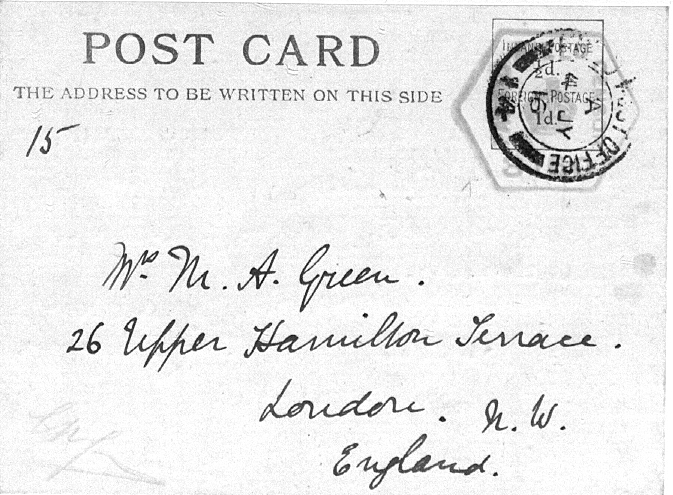 POST CARD
THE ADDRESS TO BE WRITTEN ON THIS SIDE
INLAND POSTAGE
½d.
FOREIGN POSTAGE
1d.
POST OFFICE
A
4 JY
15
15
Mrs M. A. Green.
26 Upper Hamilton Terrace.
London. N. W.
England.